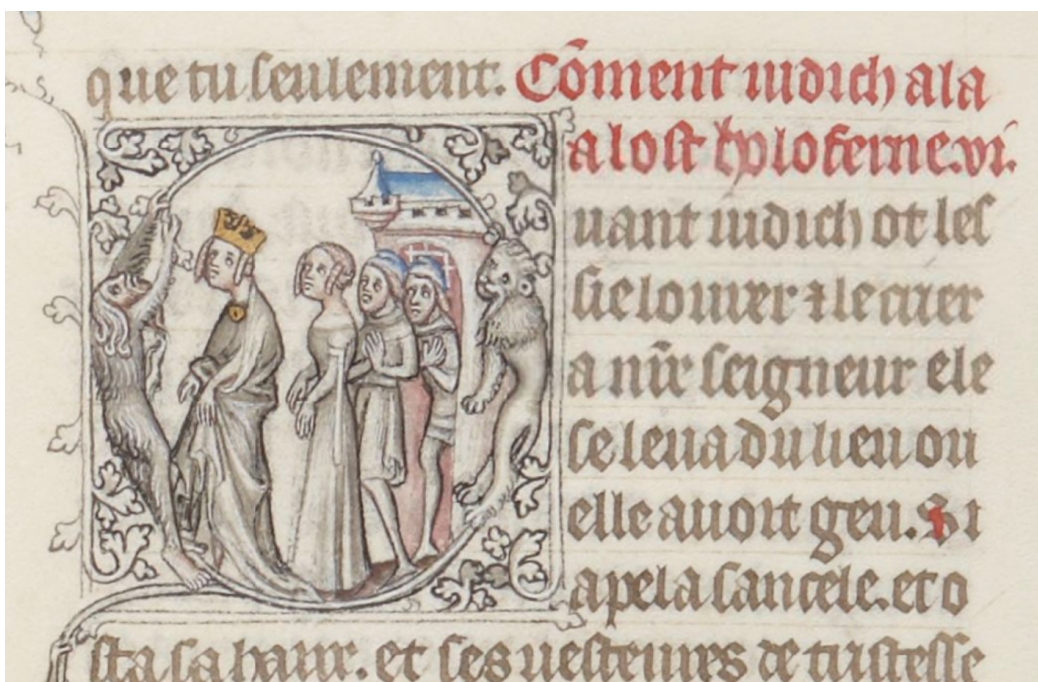 que tu seulement. Cōment iudich ala
a lost hploferne. vi.
uant iudich ot les
sie louuer ⁊ le crier
a nr̃e seigneur ele
se leua du lieu ou
elle auoit geu. Si
apela sancele. et o
sta sa haire. et ses uesteures de tristesse